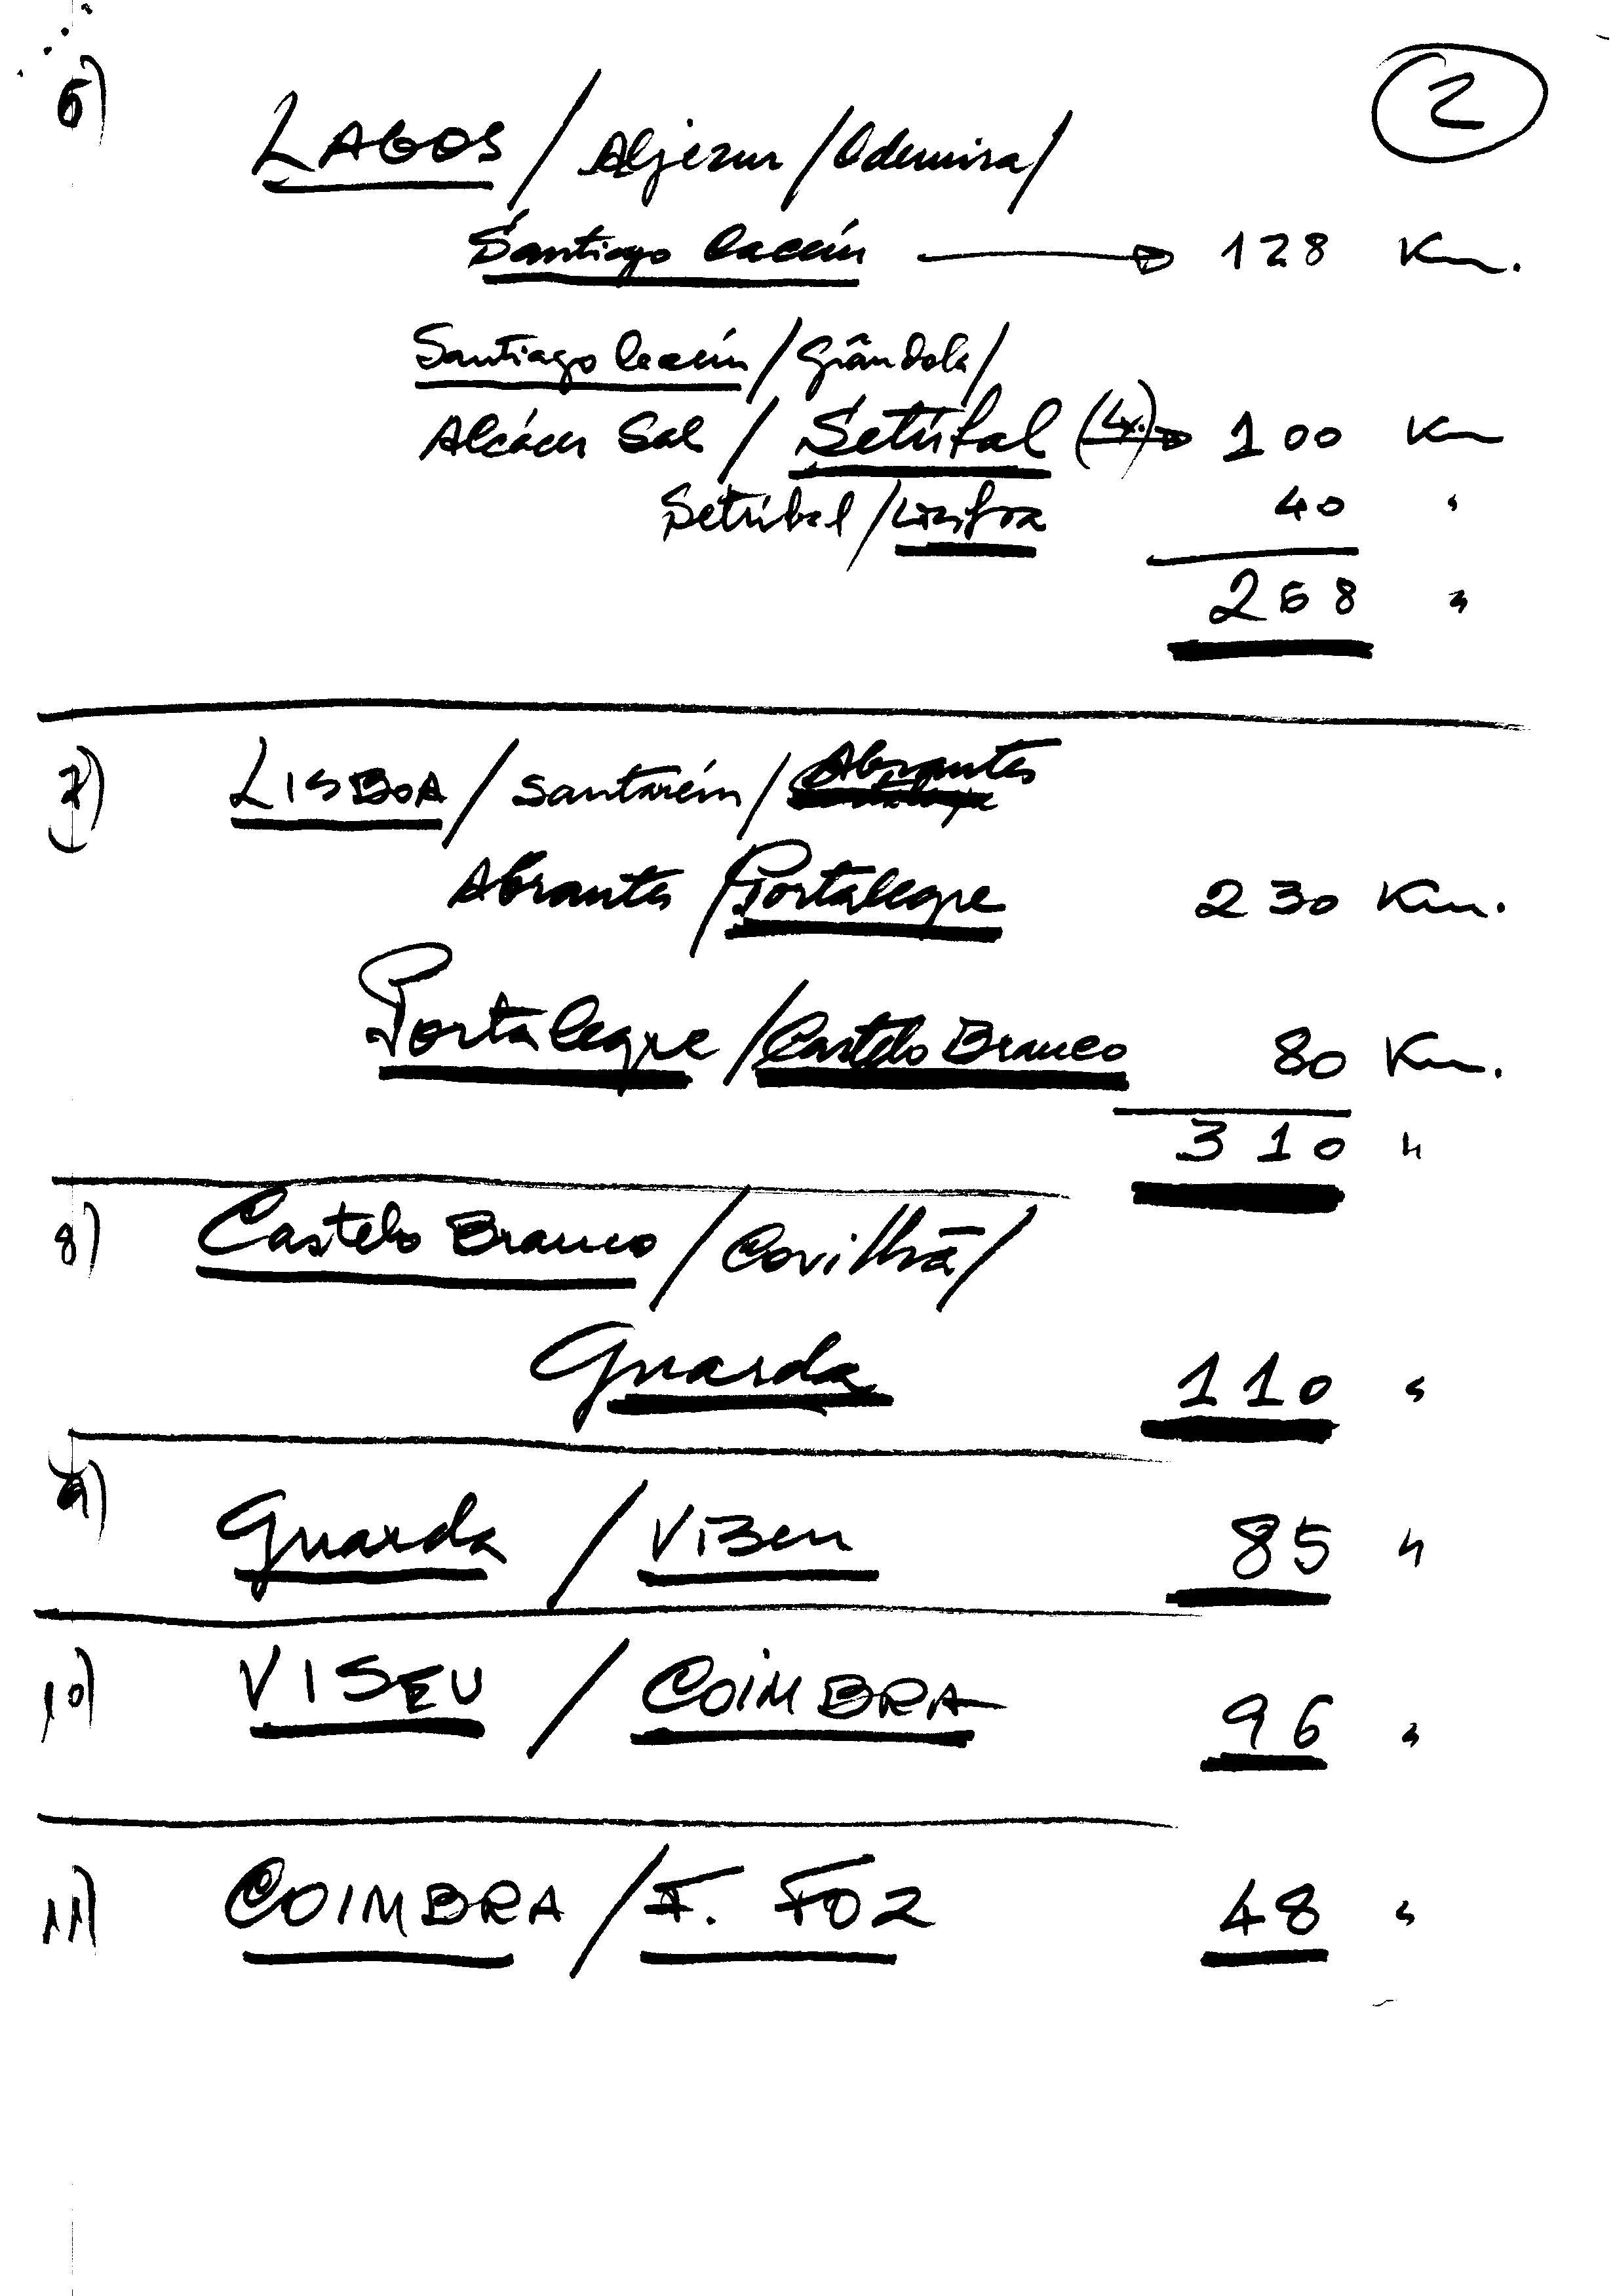 2
6) LAGOS / Aljezur / Odemira /
Santiago Cacém → 128 Km.
Santiago Cacém / Grândola /
Alcácer Sal / Setúbal (Lx.) → 100 Km
Setúbal / Lisboa 40 "
268 "
7) LISBOA / Santarém / Abrantes
Abrantes / Portalegre 230 Km.
Portalegre / Castelo Branco 80 Km.
310 "
8) Castelo Branco / Covilhã /
Guarda 110 "
9) Guarda / Viseu 85 "
10) VISEU / COIMBRA 96 "
11) COIMBRA / F. FOZ 48 "